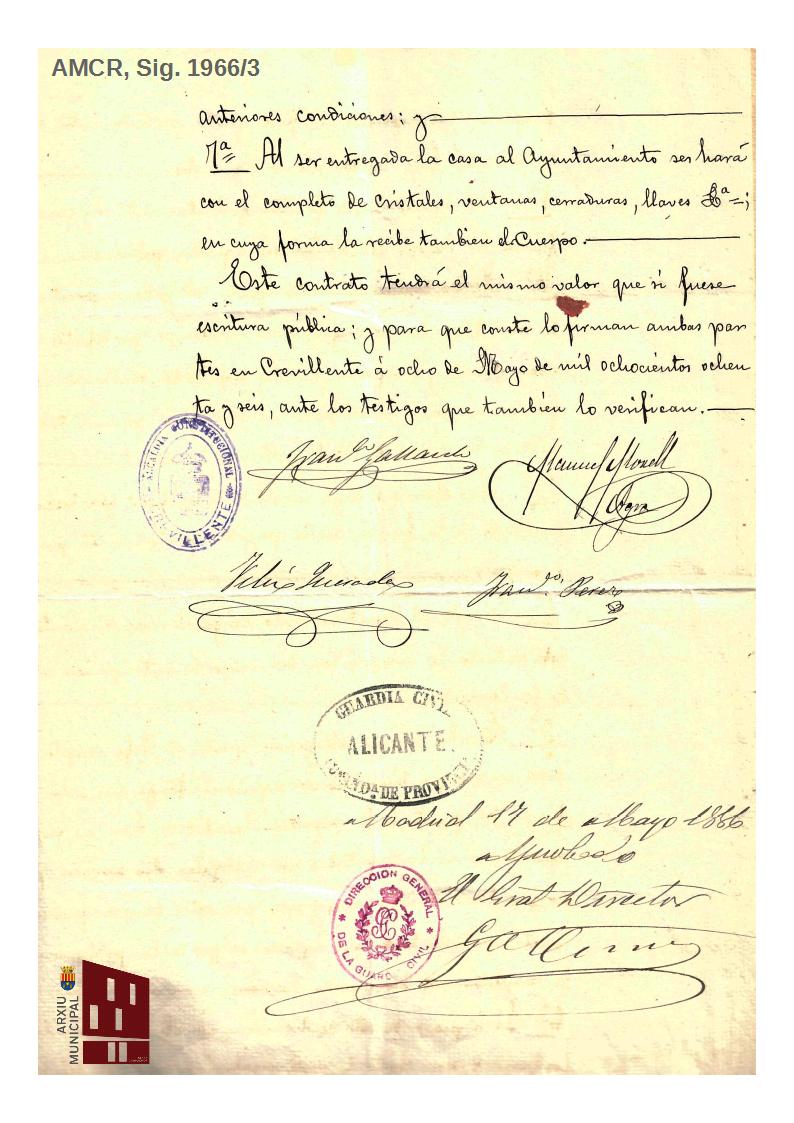 AMCR, Sig. 1966/3
anteriores condiciones; y
7ª Al ser entregada la casa al Ayuntamiento se hará
con el completo de cristales, ventanas, cerraduras, llaves &ª;
en cuya forma la recibe tambien el Cuerpo.
Este contrato tendrá el mismo valor que si fuese
escritura pública; y para que conste lo firman ambas par
tes en Crevillente á ocho de Mayo de mil ochocientos ochen
ta y seis, ante los testigos que tambien lo verifican.
ALCALDIA CONSTITUCIONAL
CREVILLENTE
Franco Gallardo
Manuel
Felix Quesada
Franco Perez
GUARDIA CIVIL
ALICANTE.
COMANDª DE PROVINCIA
Madrid 17 de Mayo 1886
Aprobado
El Gral Director
DIRECCION GENERAL
DE LA GUARDIA CIVIL
ARXIU
MUNICIPAL